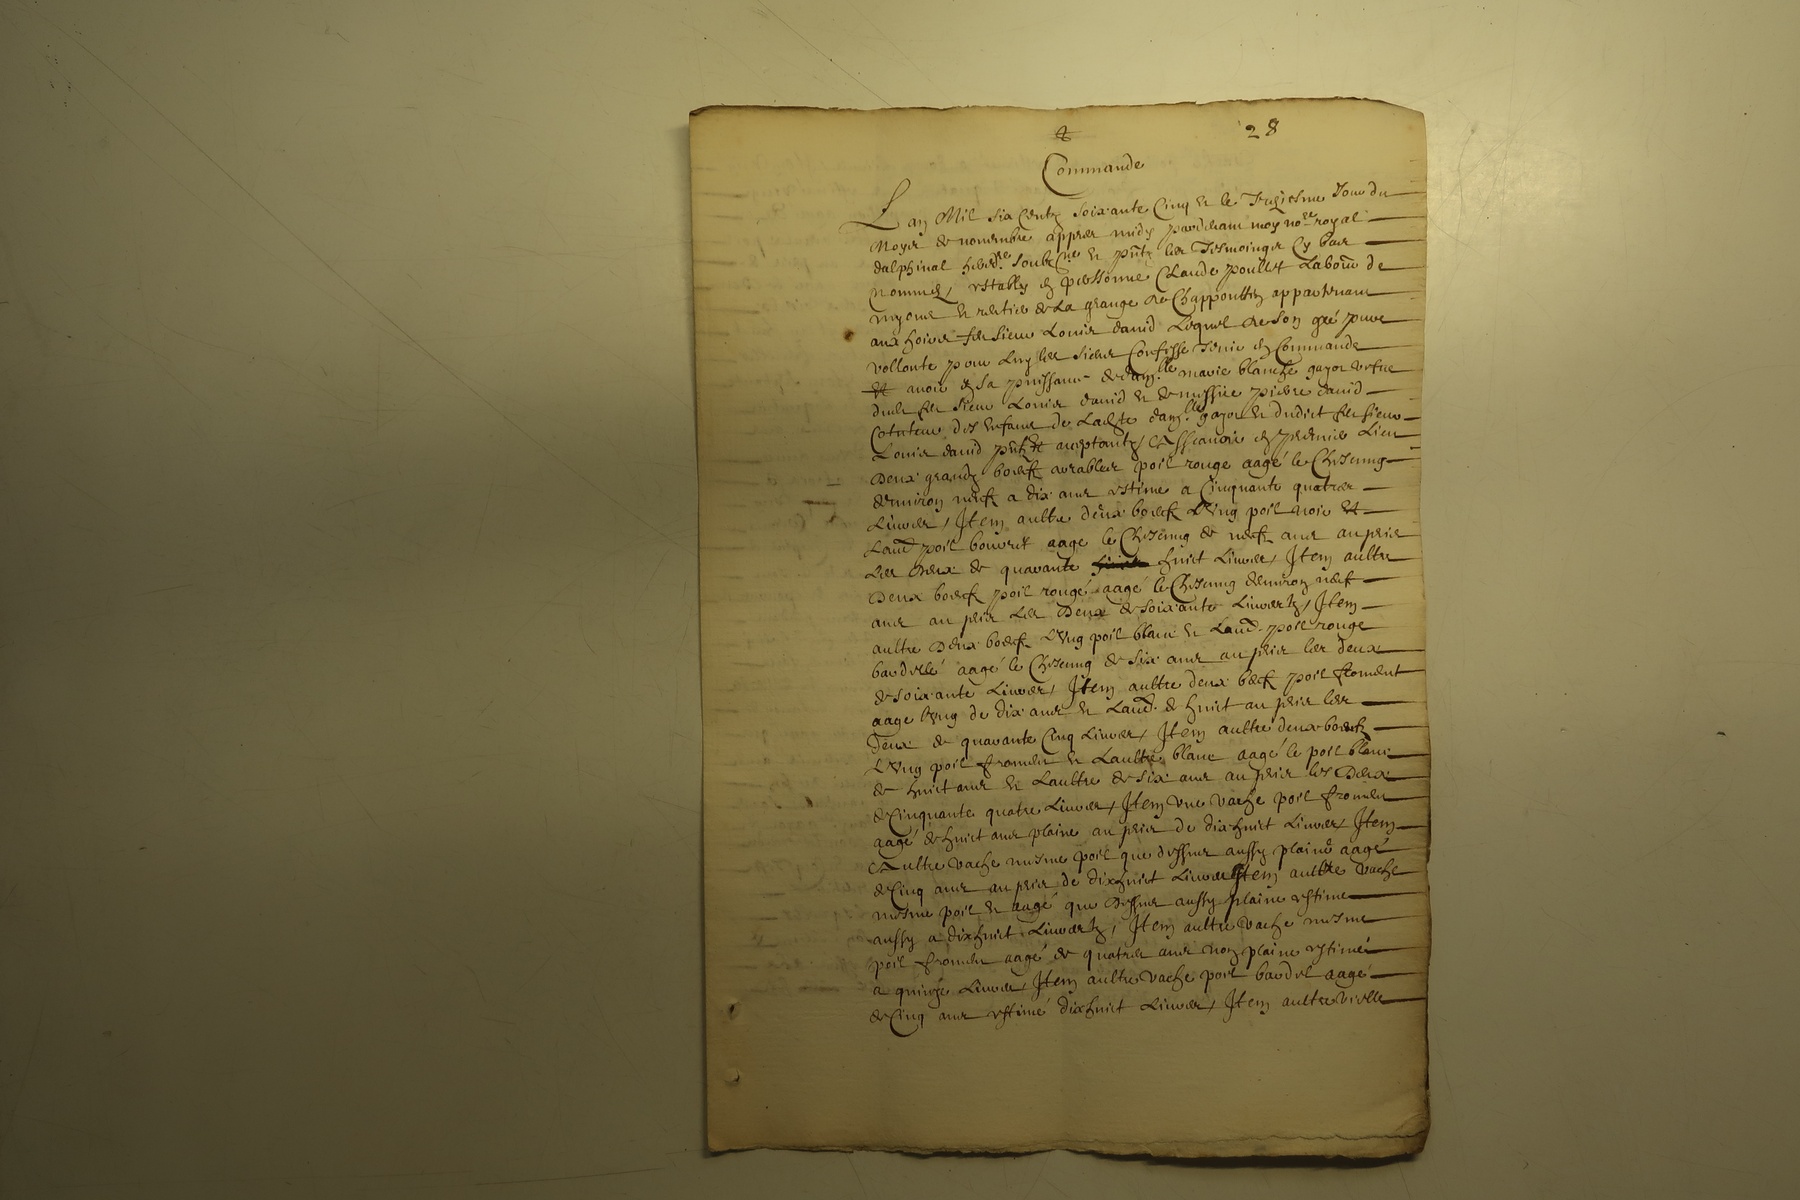 28
Commande
Lan Mil six Centz soixante Cinq et le Treziesme Jour du
Moys de novembre apprez midy pardevant moy no.re royal
dalphinal hered.re soubz.né et p̃ntz les Tesmoingz Cy bas
nommez, estably en personne Claude poullet Labour̃ de
et rentier de La grange de appartenant
aux hoirs feu sieur Louis david Lequel de son gré pure
vollonte pour Luy les siens Confesse Tenir en Commande
et avoir en sa puissance de dam.lle marie blanche gayor vefve
dud. feu sieur Louis david et de messire pierre david
Cotuteur des enfans de Ladite dam.lle gayor et dudict feu sieur
Louis david p̃ntz et aceptantz, Assavoir en premier Lieu
Deux grandz boeufz arables poil rouge aagé le Chescung
denviron neufz a dix ans estime a Cinquante quatre
Livres, Item aultre deux boeufz Lung poil noir et
Laud. poil bouvet aage le Chescung de neufz ans au prix
Les deux de quarante huict Livres, Item aultre
Deux boeufz poil rouge aagé le Chescung denviron neufz
ans au prix Les Deux de soixante Livres, Item
aultre Deux boeufz Lung poil blanc et Laud. poil rouge
bardellé aagé le Chescung de six ans au prix les deux
de soixante Livres, Item aultre deux boeufz poil froment
aage lung de dix ans et Laud. de huict au prix les
deux de quarante Cinq Livres, Item aultre deux boeufz
Lung poil froment et Laultre blanc aagé le poil blanc
de huict ans et Laultre de six ans au prix les Deux
de Cinquante quatre Livres, Item une vache poil froment
aagé de huict ans plaine au prix de dixhuict Livres, Item
Aultre vache mesme poil que dessus aussy plaine aagé
de Cinq ans au prix de dixhuict Livres Item aultre vache
mesme poil et aagé que Dessus aussy plaine estime
aussy a dixhuict Livres, Item aultre vache mesme
poil froment aagé de quatre ans non plaine estimé
a quinze Livres, Item aultre vache poil bardel aagé
de Cinq ans estimé dixhuict Livres, Item aultre vielle